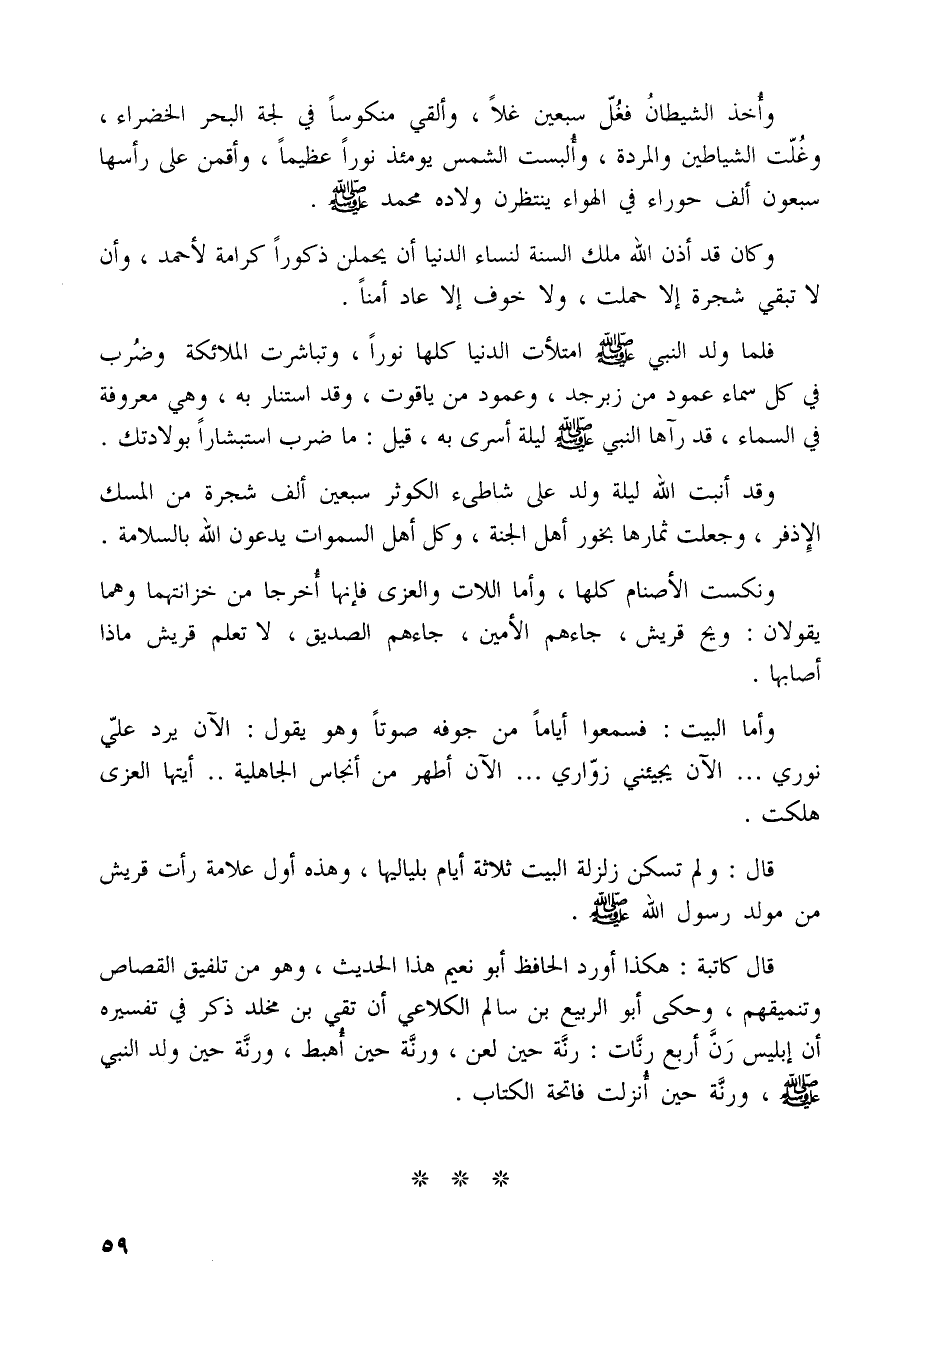 وأُخذ الشيطانُ فغُلّ سبعين غلاً ، وألقي منكوساً في لجة البحر الخضراء ،
وغُلّت الشياطين والمردة ، وأُلبست الشمس يومئذ نوراً عظيماً ، وأقمن على رأسها
سبعون ألف حوراء في الهواء ينتظرن ولاده محمد ﷺ .
وكان قد أذن الله ملك السنة لنساء الدنيا أن يحملن ذكوراً كرامة لأحمد ، وأن
لا تبقي شجرة إلا حملت ، ولا خوف إلا عاد أمناً .
فلما ولد النبي ﷺ امتلأت الدنيا كلها نوراً ، وتباشرت الملائكة وضُرب
في كل سماء عمود من زبرجد ، وعمود من ياقوت ، وقد استنار به ، وهي معروفة
في السماء ، قد رآها النبي ﷺ ليلة أسرى به ، قيل : ما ضرب استبشاراً بولادتك .
وقد أنبت الله ليلة ولد على شاطىء الكوثر سبعين ألف شجرة من المسك
الإذفر ، وجعلت ثمارها بخور أهل الجنة ، وكل أهل السموات يدعون الله بالسلامة .
ونكست الأصنام كلها ، وأما اللات والعزى فإنها أُخرجا من خزانتهما وهما
يقولان : ويح قريش ، جاءهم الأمين ، جاءهم الصديق ، لا تعلم قريش ماذا
أصابها .
وأما البيت : فسمعوا أياماً من جوفه صوتاً وهو يقول : الآن يرد عليّ
نوري ... الآن يجيئني زوّاري ... الآن أطهر من أنجاس الجاهلية .. أيتها العزى
هلكت .
قال : ولم تسكن زلزلة البيت ثلاثة أيام بلياليها ، وهذه أول علامة رأت قريش
من مولد رسول الله ﷺ .
قال كاتبة : هكذا أورد الحافظ أبو نعيم هذا الحديث ، وهو من تلفيق القصاص
وتنميقهم ، وحكى أبو الربيع بن سالم الكلاعي أن تقي بن مخلد ذكر في تفسيره
أن إبليس رَنَّ أربع رنَّات : رنَّة حين لعن ، ورنَّة حين أُهبط ، ورنَّة حين ولد النبي
ﷺ ، ورنَّة حين أُنزلت فاتحة الكتاب .
* * *
٥٩